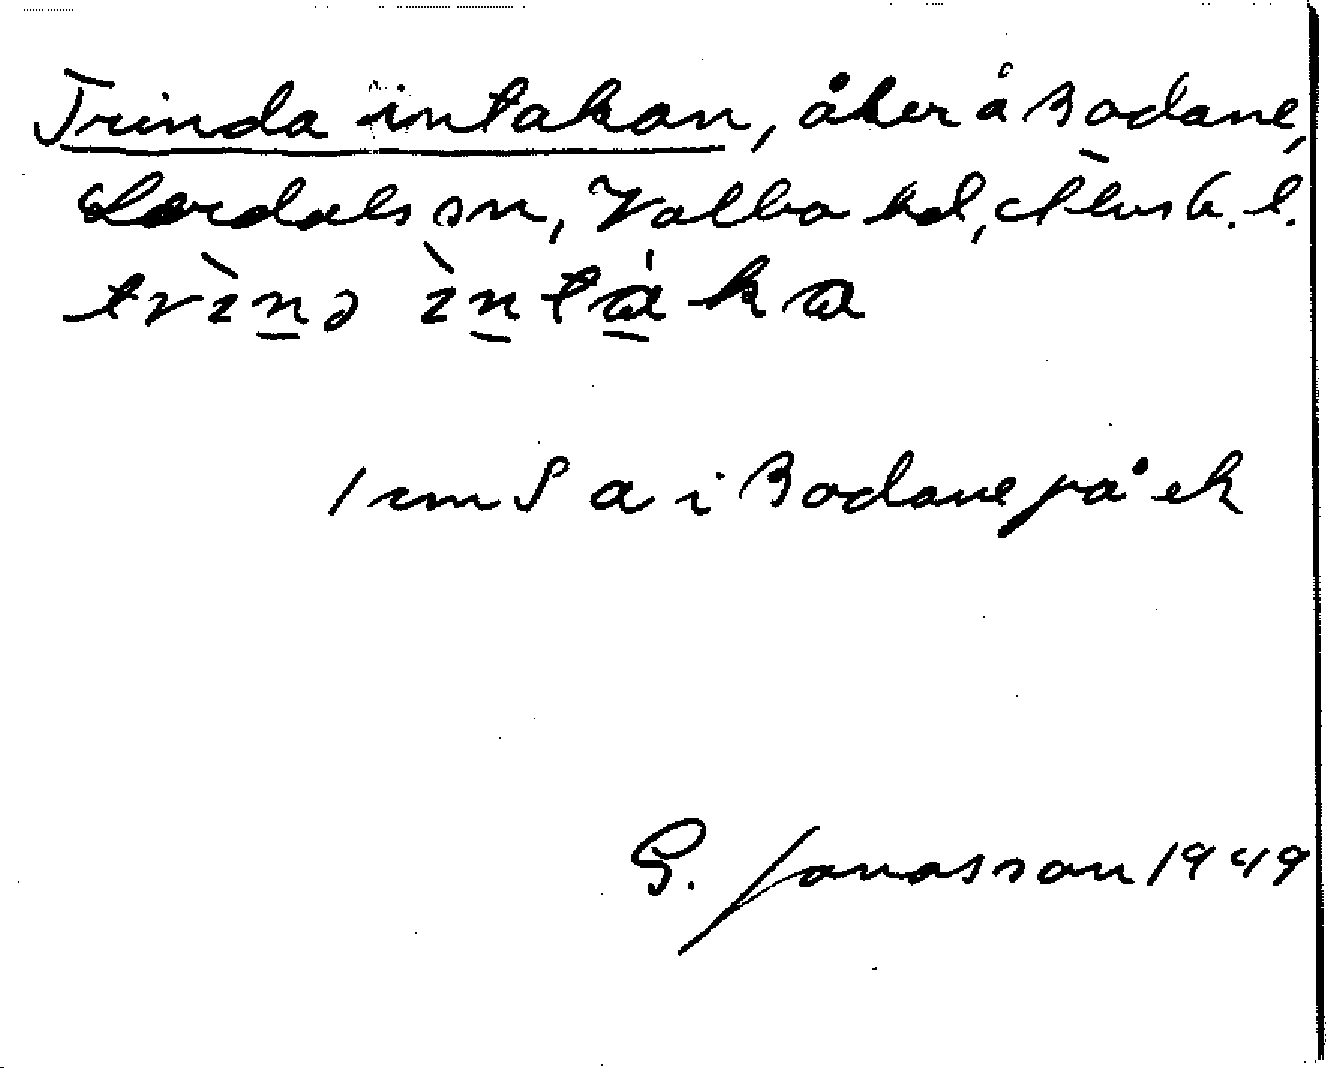 Trinda intakan, åker å Bodane,
Lærdals sn, Valbo hd, Älvsb. l.
trìnə ìntáka
1 cm S a i Bodane på ek
G. Jonasson 1949